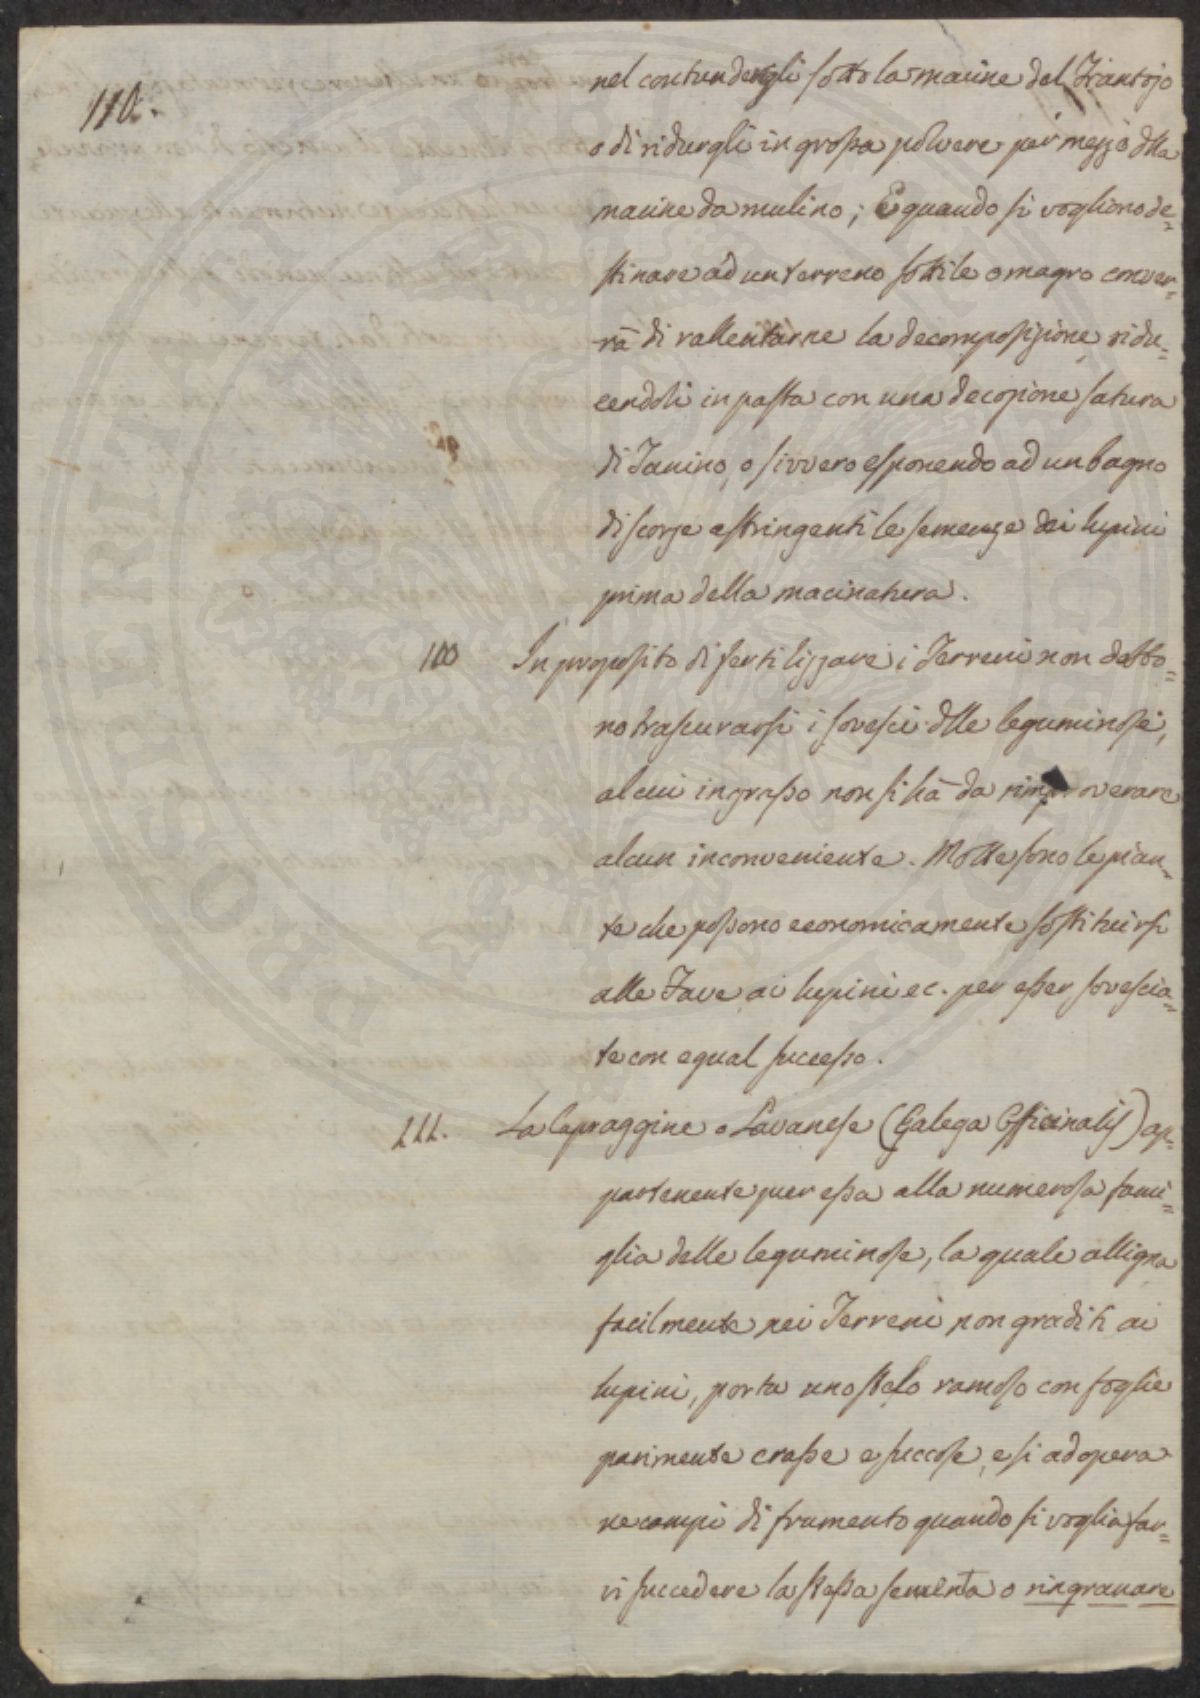 110.
nel contundergli sotto la macine del Frantojo
o di ridurgli in grossa polvere per mezzo dlla
macine da mulino; E quando si vogliono de=
stinare ad un terreno sottile o magro conver=
rà di rallentarne la decomposizione, ridu=
cendoli in pasta con una decozione satura
di Tanino, o sivvero esponendo ad un bagno
di scorze astringenti le semenze dei lupini
prima della macinatura.
100 In proposito di fertilizzare i Terreni non debbo=
no trascurarsi i sovesci dlle leguminose,
al cui ingrasso non si hà da rimproverare
alcun inconveniente. Molte sono le pian=
te che possono economicamente sostituirsi
alle Fave ai lupini ec. per esser sovescia=
te con egual successo.
111. La Capraggine o Lavanese (Galega Officinalis) ap=
partenente pur essa alla numerosa fami=
glia delle leguminose, la quale alligna
facilmente nei Terreni non graditi ai
lupini, porta uno stelo ramoso con foglie
parimente crasse e succose, e si adopera
ne campi di frumento quando si voglia far=
vi succedere la stessa sementa o ringranare